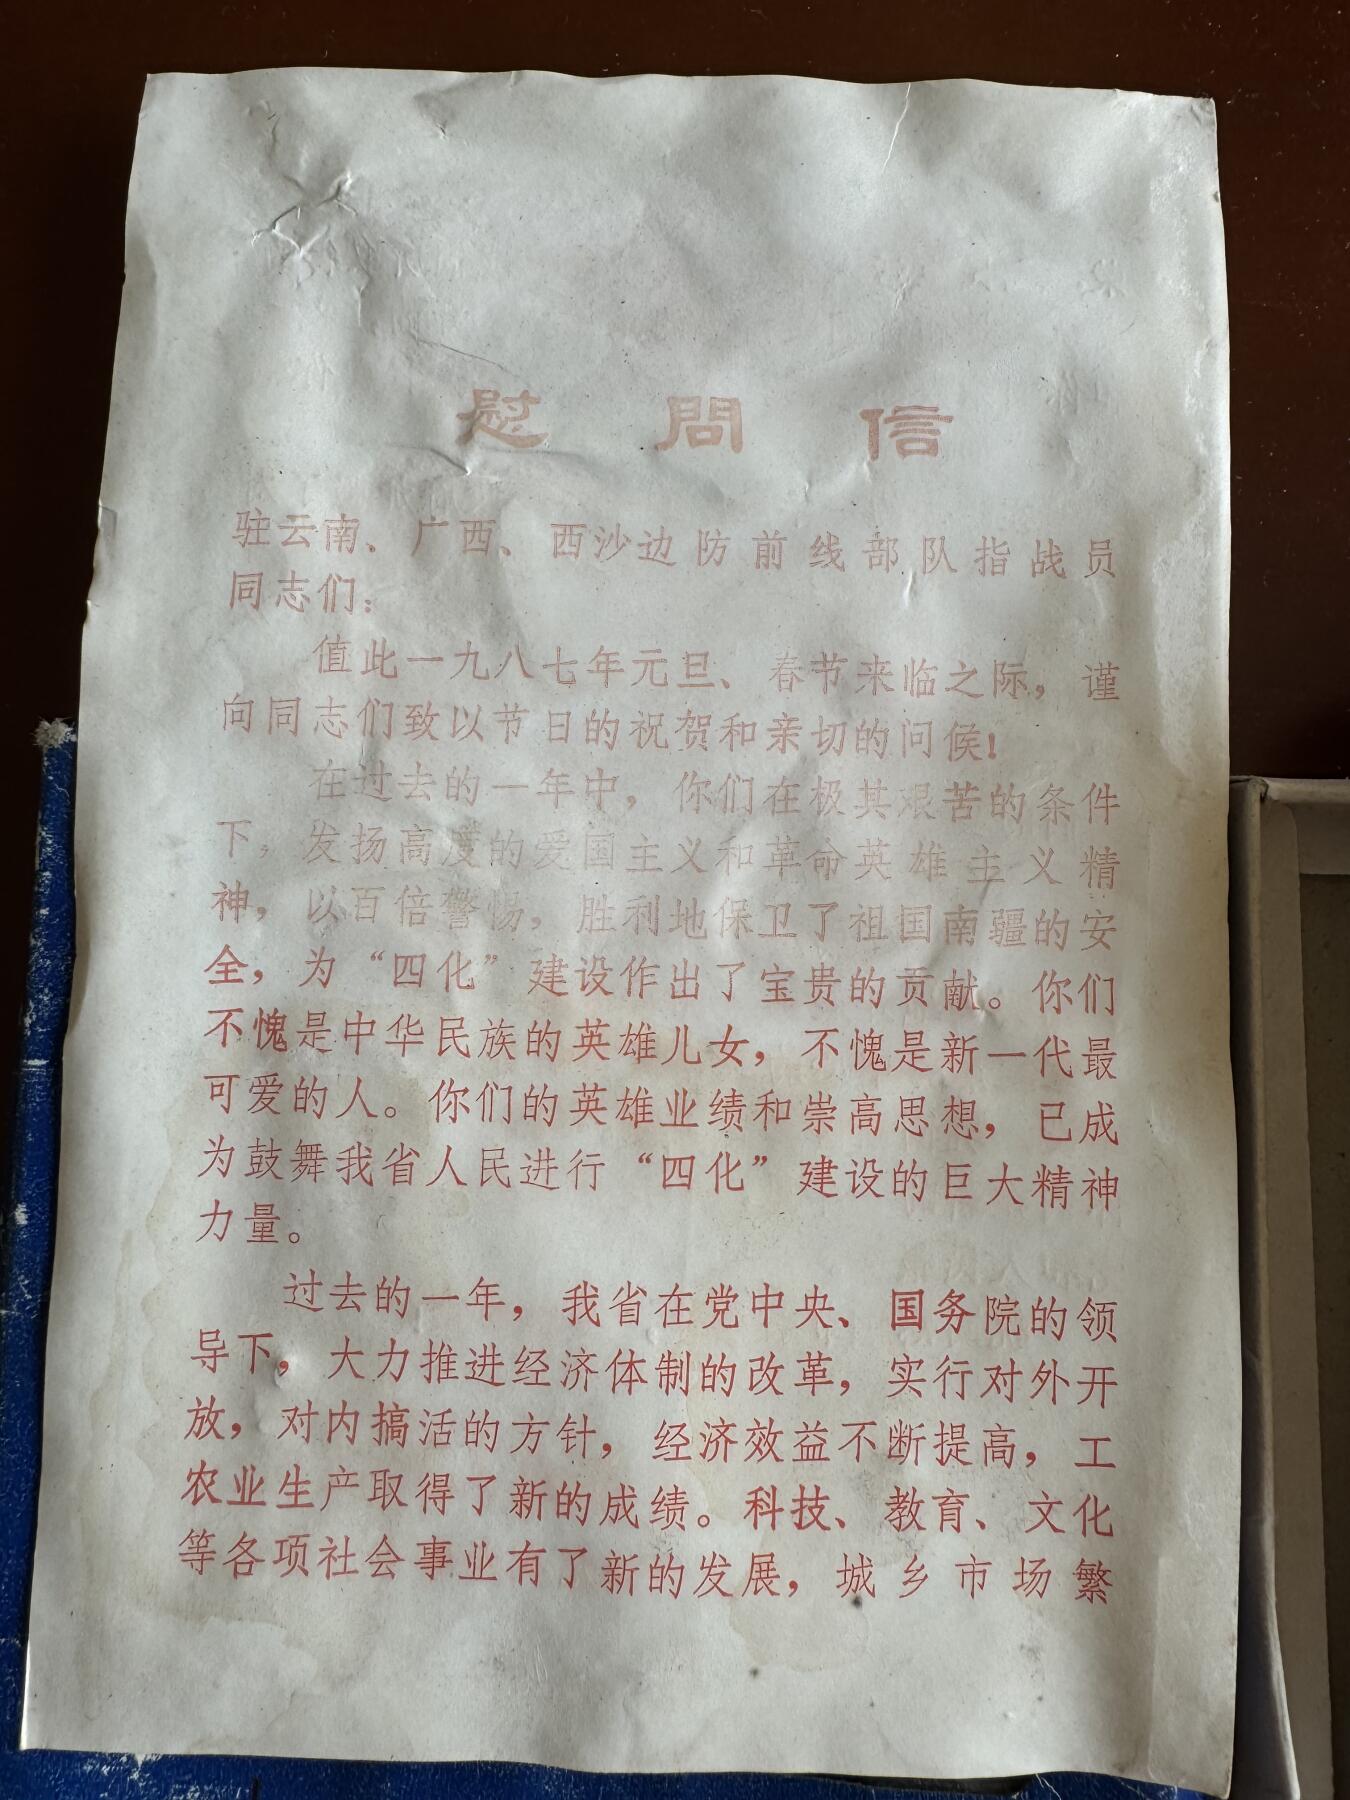 慰問信
驻云南、广西、西沙边防前线部队指战员
同志们：
值此一九八七年元旦、春节来临之际，谨
向同志们致以节日的祝贺和亲切的问候！
在过去的一年中，你们在极其艰苦的条件
下，发扬高度的爱国主义和革命英雄主义精
神，以百倍警惕，胜利地保卫了祖国南疆的安
全，为“四化”建设作出了宝贵的贡献。你们
不愧是中华民族的英雄儿女，不愧是新一代最
可爱的人。你们的英雄业绩和崇高思想，已成
为鼓舞我省人民进行“四化”建设的巨大精神
力量。
过去的一年，我省在党中央、国务院的领
导下，大力推进经济体制的改革，实行对外开
放，对内搞活的方针，经济效益不断提高，工
农业生产取得了新的成绩。科技、教育、文化
等各项社会事业有了新的发展，城乡市场繁